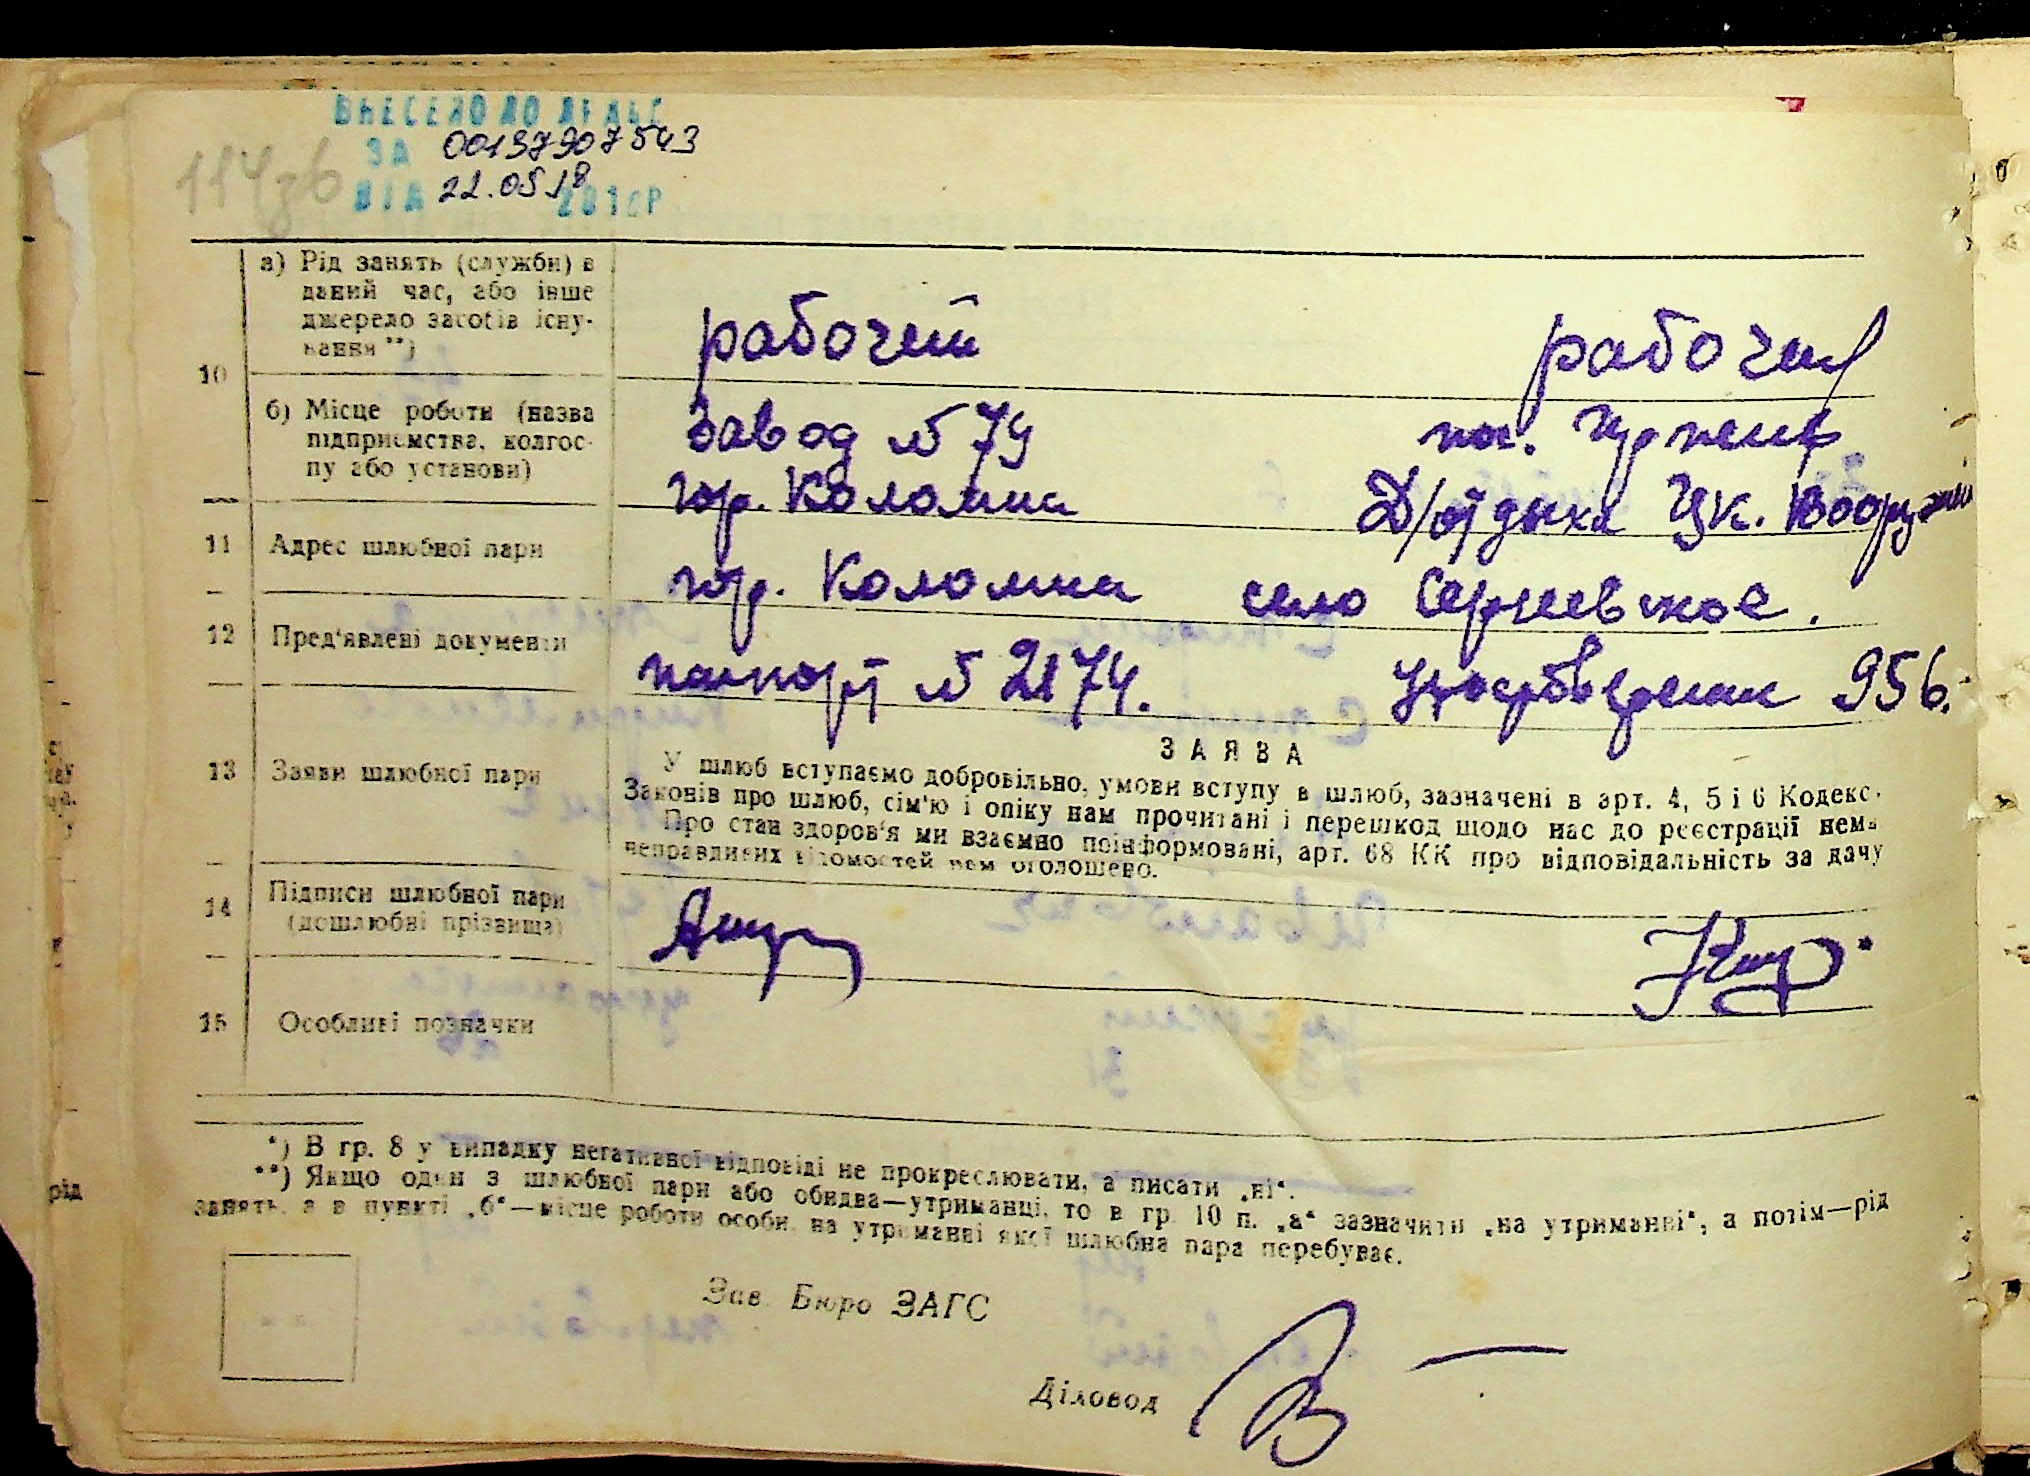 ВНЕСЕНО ДО ДРАЦС
ЗА 00137907543
114зв
ВІД 22.05.18 201 Р
10
а) Рід занять (служби) в
даний час, або інше
джерело засобів існу-
вання **)
рабочей
рабочей
б) Місце роботи (назва
підприємства, колгос-
пу або установи)
Завод № 79
гор. Коломна
пос. Ирпень
Д/отдыха ЦК. Вооружен
11 Адрес шлюбної пари
гор. Коломна село Сергеевское.
12 Пред'явлені документи
паспорт № 2174. Удостоверение 956.
13 Заяви шлюбної пари
ЗАЯВА
У шлюб вступаємо добровільно, умови вступу в шлюб, зазначені в арт. 4, 5 і 6 Кодекс.
Законів про шлюб, сім'ю і опіку нам прочитані і перешкод щодо нас до реєстрації нема
Про стан здоров'я ми взаємно поінформовані, арт. 68 КК про відповідальність за дачу
неправдивих відомостей нам оголошено.
14 Підписи шлюбної пари
(дошлюбні прізвища)
15 Особливі позначки
*) В гр. 8 у випадку негативної відповіді не прокреслювати, а писати „ні“.
**) Якщо один з шлюбної пари або обидва—утриманці, то в гр. 10 п. „а“ зазначити „на утриманні“, а потім—рід
занять, а в пункті „б“—місце роботи особи, на утриманні якої шлюбна пара перебуває.
рід
Зав. Бюро ЗАГС
Діловод